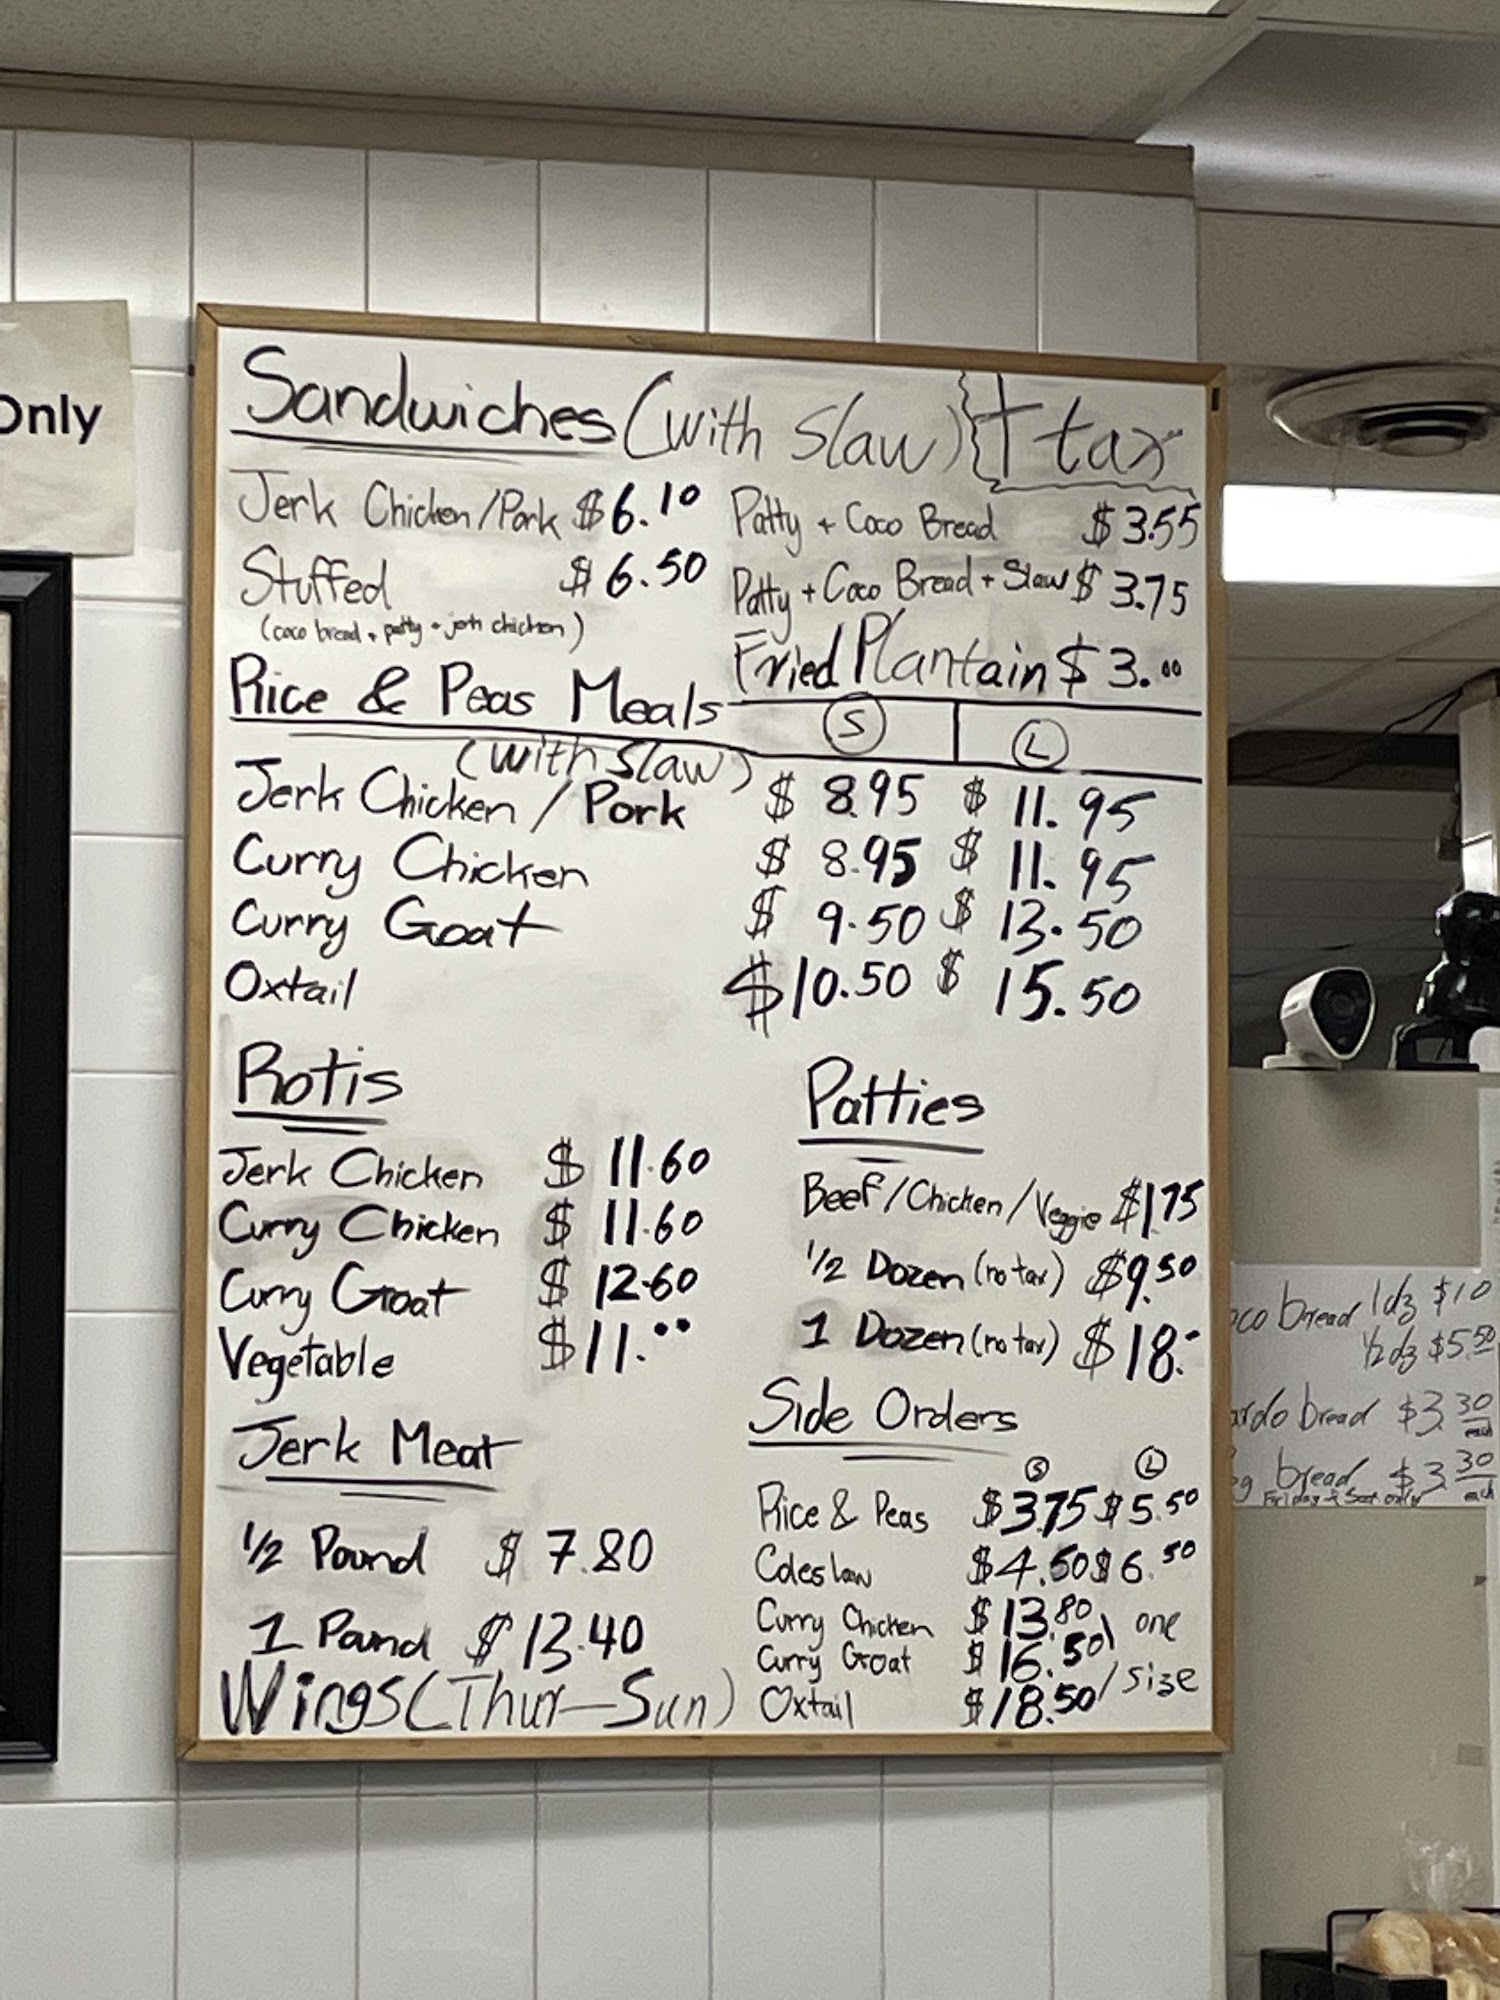 Only
Sandwiches (with slaw) + tax
Jerk Chicken/Pork $6.10
Stuffed $6.50
(coco bread + patty + jerk chicken)
Patty + Coco Bread $3.55
Patty + Coco Bread + Slaw $3.75
Fried Plantain $3.00
Rice & Peas Meals S L
(with slaw)
Jerk Chicken / Pork $8.95 $11.95
Curry Chicken $8.95 $11.95
Curry Goat $9.50 $13.50
Oxtail $10.50 $15.50
Rotis
Jerk Chicken $11.60
Curry Chicken $11.60
Curry Goat $12.60
Vegetable $11.00
Jerk Meat
1/2 Pound $7.80
1 Pound $13.40
Wings (Thur-Sun)
Patties
Beef/Chicken/Veggie $1.75
1/2 Dozen (no tax) $9.50
1 Dozen (no tax) $18.-
Side Orders
S L
Rice & Peas $3.75 $5.50
Coleslaw $4.50 $6.50
Curry Chicken $13.80
Curry Goat $16.50
Oxtail $18.50
one
size
bread 1dz $10
1/2 dz $5.50
bread $3.30 each
bread $3.30 each
Friday + Sat only